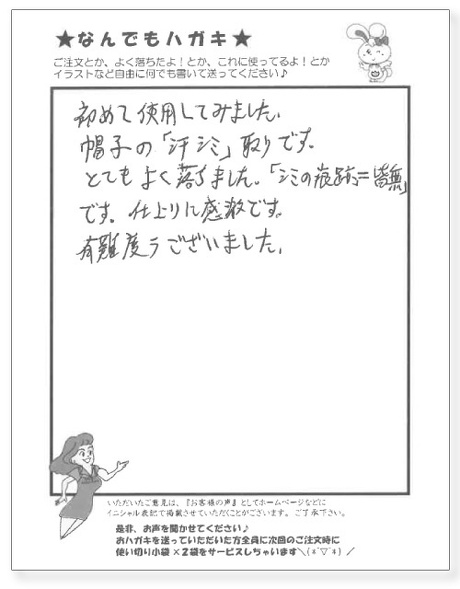 ★なんでもハガキ★
ご注文とか、よく落ちたよ！とか、これに使ってるよ！とか
イラストなど自由に何でも書いて送ってください♪
初めて使用してみました。
帽子の「汗シミ」取りです。
とてもよく落ちました。「シミの痕跡=皆無」
です。仕上りに感激です。
有難度うございました。
いただいたご意見は、『お客様の声』としてホームページなどに
イニシャル表記で掲載させていただくことがございます。ご了承下さい。
是非、お声を聞かせてください♪
おハガキを送っていただいた方全員に次回のご注文時に
使い切り小袋×2袋をサービスしちゃいます＼(*ﾟ▽ﾟ*)／